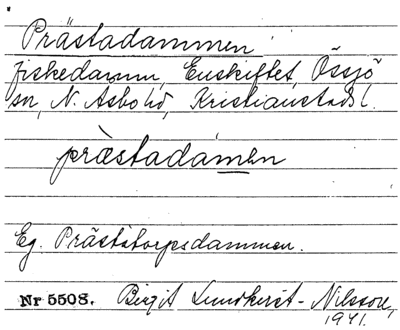 Prästadammen
fiskedamm, Enskiftet, Össjö
sn, N. Åsbo hd, Kristianstads l.
præ̀stadámen
Eg. Prästtorpsdammen.
Nr 5508. Birgit Lundkvist-Nilsson,
1941.